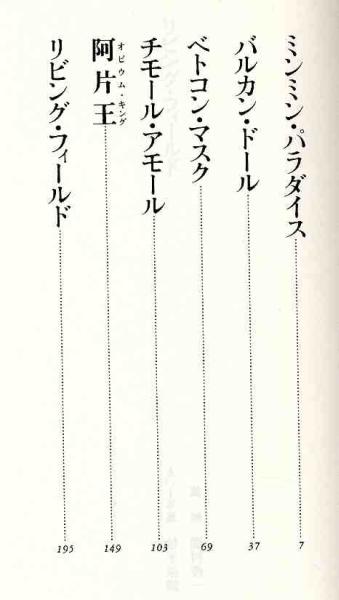 ミンミン・パラダイス 7
バルカン・ドール 37
ベトコン・マスク 69
チモール・アモール 103
阿片王 オピウム・キング 149
リビング・フィールド 195